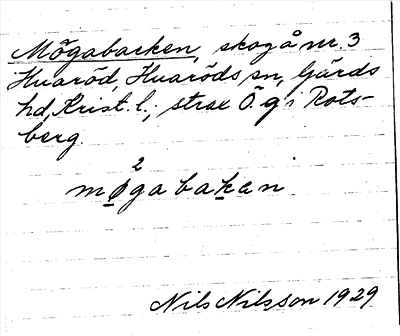 Mögabacken, skog å nr. 3
Huaröd, Huaröds sn, Gärds
hd, Krist. l.; strax Ö. g i Rots-
berg.
2
møga baken
Nils Nilsson 1929